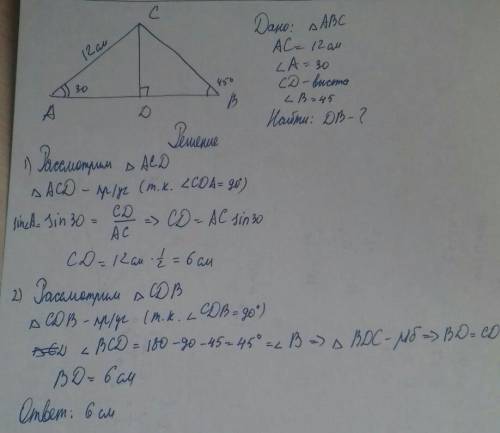 C
12 см
30
45°
A
D
B
Дано: △ABC
AC = 12 см
∠A = 30
CD - высота
∠B = 45
Найти: DB - ?
Решение
1) Рассмотрим △ACD
△ACD - пр/уг (т.к. ∠CDA = 90°)
sin∠A = sin 30 = CD/AC => CD = AC sin 30
CD = 12 см · 1/2 = 6 см
2) Рассмотрим △CDB
△CDB - пр/уг (т.к. ∠CDB = 90°)
∠BCD = 180 - 90 - 45 = 45° = ∠B => △BDC - р/б => BD = CD
BD = 6 см
Ответ: 6 см